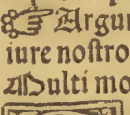 ☞ Argu
iure noſtro
Multi mo